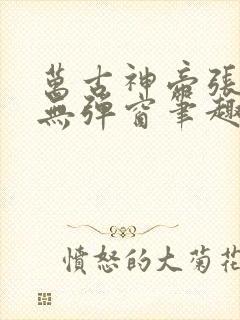 萬古神帝張
無彈窗筆趣
憤怒的大菊花